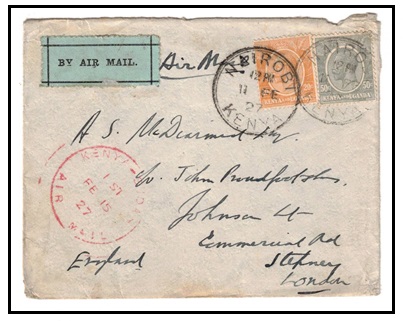 BY AIR MAIL.
Air Mail
NAIROBI
12 PM
11 FE
27
KENYA
50
KENYA
AIR MAIL
FE 15
27
A. S. McDearmid Esq.
c/o John Proudfoot
Johnson St
Commercial Rd
Stepney
London
England